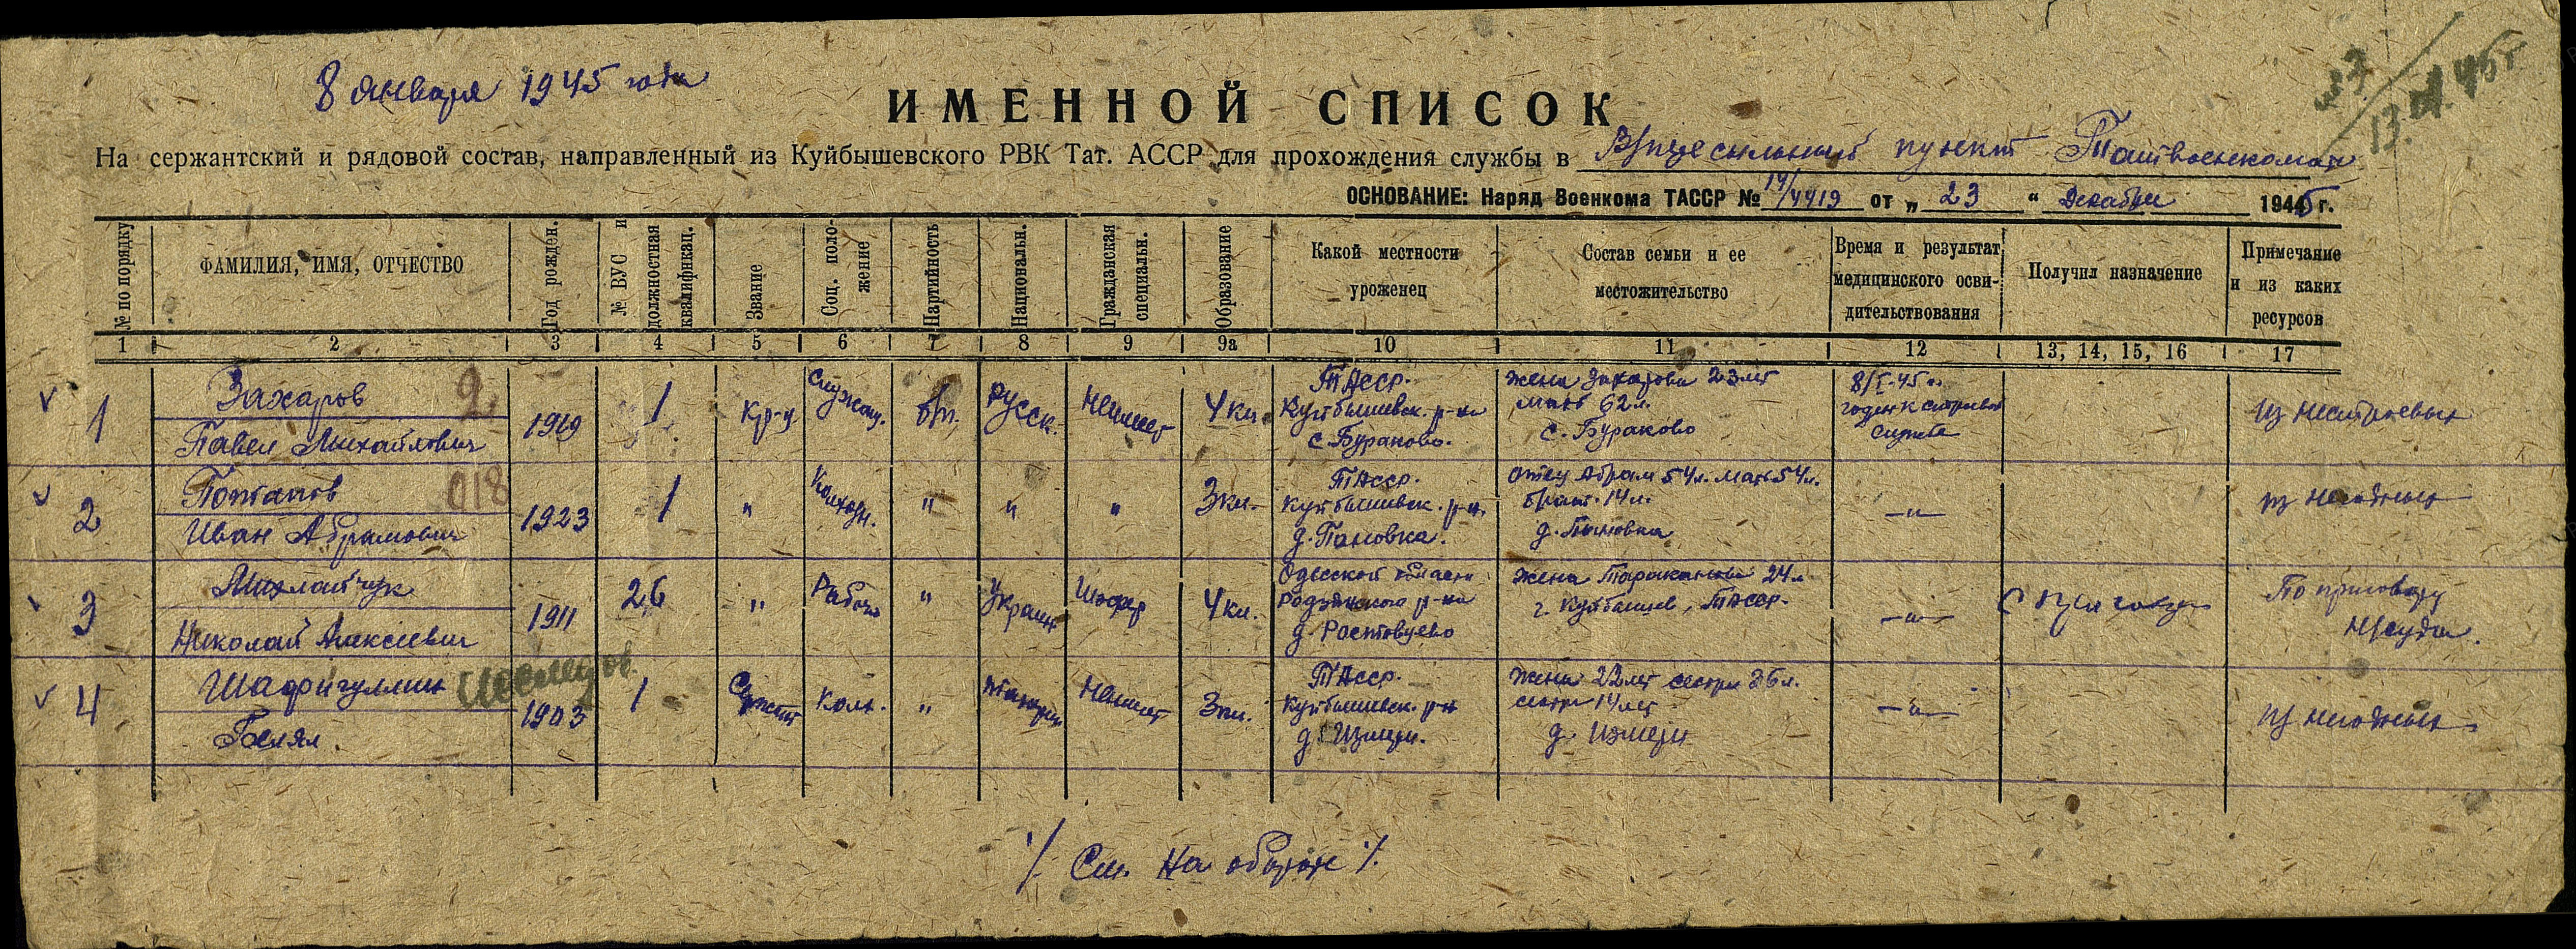 8 января 1945 года
№3
13.01.45 г.
ИМЕННОЙ СПИСОК
На сержантский и рядовой состав, направленный из Куйбышевского РВК Тат. АССР для прохождения службы в В/пересыльный пункт Татвоенкомата
ОСНОВАНИЕ: Наряд Военкома ТАССР № 14/4419 от „ 23 “ Декабря 1945 г.
№ по порядку
ФАМИЛИЯ, ИМЯ, ОТЧЕСТВО
Год рожден.
№ ВУС и
должностная
квалификац.
Звание
Соц. поло-
жение
Партийность
Национальн.
Гражданская
специальн.
Образование
Какой местности
уроженец
Состав семьи и ее
местожительство
Время и результат
медицинского осви-
дительствования
Получил назначение
Примечание
и из каких
ресурсов
1 2 3 4 5 6 7 8 9 9а 10 11 12 13, 14, 15, 16 17
1
Захаров
2
Павел Михайлович
1919
1
Кр-ц
Служащ.
б/п.
Русск.
Неимеет
4 кл.
ТАССР.
Куйбышевск. р-на
с. Бураково.
жена Захарова 23 лет
мать 62 л.
с. Бураково
8/I-45 г.
годен к строевой
службе
из нестроевых
2
Потапов
018
Иван Абрамович
1923
1
"
Колхозн.
"
"
"
3 кл.
ТАССР.
Куйбышевск. р-н.
д. Пановка.
отец Абрам 54 л. мать 54 л.
брат 14 л.
д. Пановка
—"—
из негодных
3
Михлайчук
Николай Алексеевич
1911
26
"
Рабоч
"
Украин
Шофер
4 кл.
Одесской области
р-на
д.
жена Тараканова 24 л
г. Куйбышев, ТАССР.
—"—
По приговору
Н/суда.
4
Шафигуллин
Белял
1903
1
Сержант
Колх.
"
татарин
Неимеет
3 кл.
ТАССР.
Куйбышевск. р-н
д. Измери.
Жена 22 лет сестра 26 л.
сестра 14 лет
д. Измери
—"—
из негодных
·/. См. на обороте ·/.